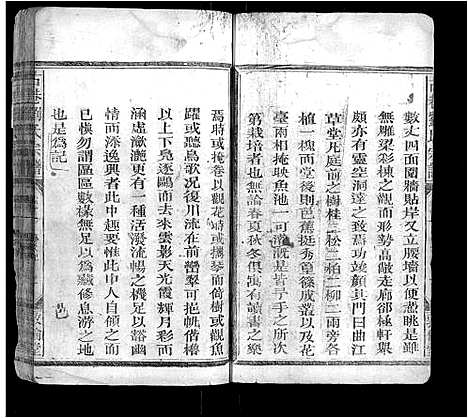 數丈四面圍牆貼岸又立腰墻以便蒞眺是雖
無雕梁彩棟之觀而形勢高敞走廊郤極軒舉
頗亦有靈空洞達之致茲功竣顏其門曰曲江
草堂凡庭前之樹桂三松二柏二柳二雨旁各
植一槐而堂後則芭蕉挺秀篁篠成叢以及花
臺兩相掩映魚池一可灌溉是皆予手之所次
第栽培者也無論春夏秋冬俱寓有讀書之樂
焉時或掩卷以觀花時或攜琴而倚樹或觀魚
躍或聽鳥歌况復川流在前巒翠可挹帆檣櫓
以上下鳧逐鷗而去來雲影天光霞輝月彩而
涵虛瀲灧更有以一種活潑流暢之機足以諮幽
情而添逸興者此中趣要惟此中人自領之而
已慎勿謂區區數椽無足以爲藏修息游之地
也是爲記